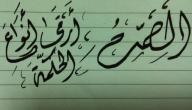 الصمت أرقى أنواع
الحكمة